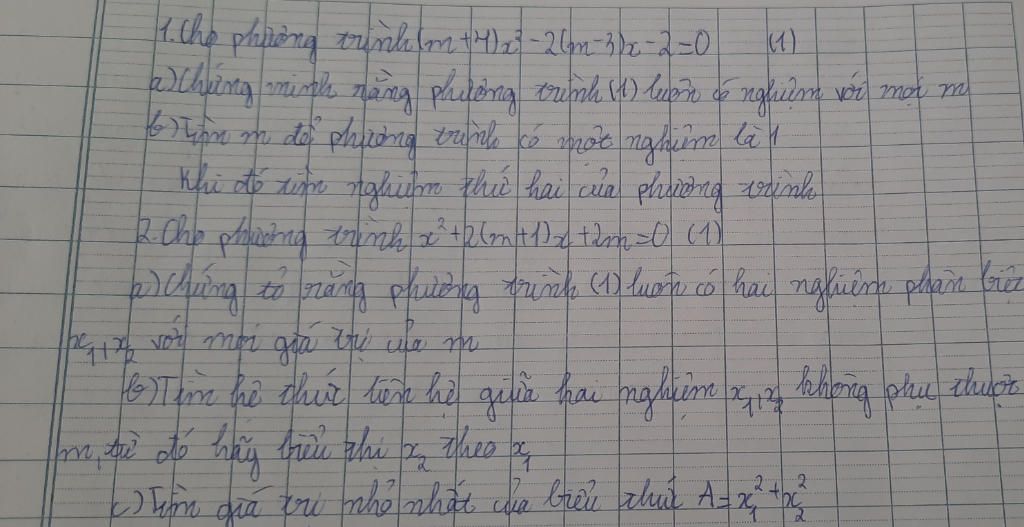 1. Cho phương trình (m+4)x² - 2(m-3)x - 2 = 0 (1)
a) Chứng minh rằng phương trình (1) luôn có nghiệm với mọi m
b) Tìm m để phương trình có một nghiệm là 1
Khi đó tìm nghiệm thứ hai của phương trình
2. Cho phương trình x² + 2(m+1)x + 2m = 0 (1)
a) Chứng tỏ rằng phương trình (1) luôn có hai nghiệm phân biệt
x₁, x₂ với mọi giá trị của m
b) Tìm hệ thức liên hệ giữa hai nghiệm x₁, x₂ không phụ thuộc
m, từ đó hãy biểu thị x₂ theo x₁
c) Tìm giá trị nhỏ nhất của biểu thức A = x₁² + x₂²